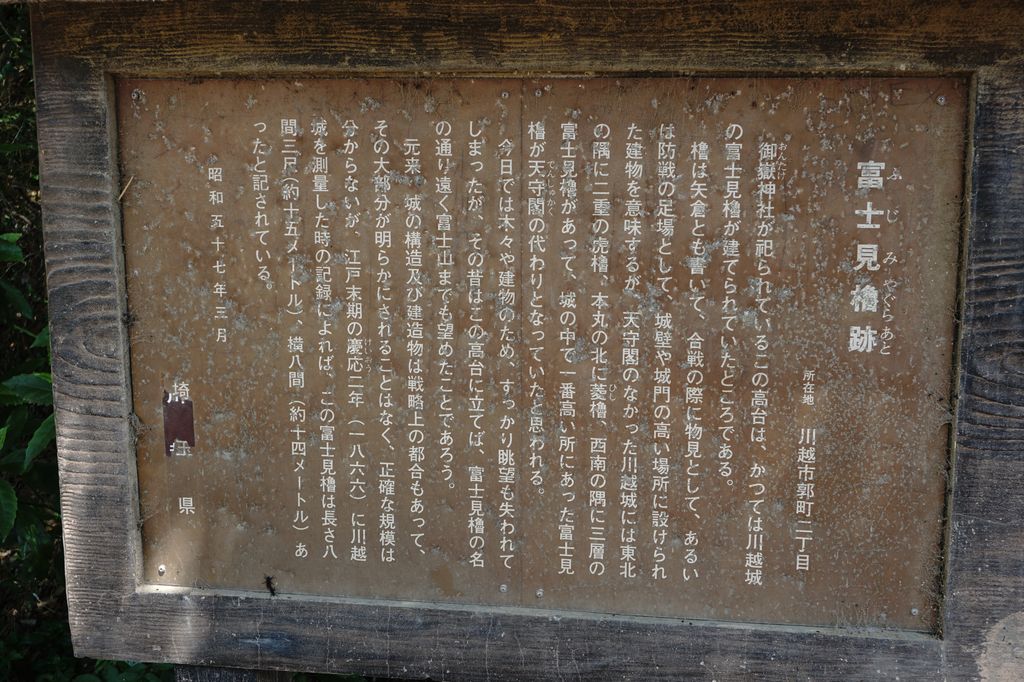 富士見櫓跡
ふじみやぐらあと
所在地 川越市郭町二丁目
御嶽神社が祀られているこの高台は、かつては川越城
おんたけ
の富士見櫓が建てられていたところである。
櫓は矢倉とも書いて、合戦の際に物見として、あるい
は防戦の足場として、城壁や城門の高い場所に設けられ
た建物を意味するが、天守閣のなかった川越城には東北
の隅に二重の虎櫓、本丸の北に菱櫓、西南の隅に三層の
ひし
富士見櫓があって、城の中で一番高い所にあった富士見
櫓が天守閣の代わりとなっていたと思われる。
てんしゅかく
今日では木々や建物のため、すっかり眺望も失われて
しまったが、その昔はこの高台に立てば、富士見櫓の名
の通り遠く富士山までも望めたことであろう。
元来、城の構造及び建造物は戦略上の都合もあって、
その大部分が明らかにされることはなく、正確な規模は
分からないが、江戸末期の慶応二年（一八六六）に川越
けいおう
城を測量した時の記録によれば、この富士見櫓は長さ八
間三尺（約十五メートル）、横八間（約十四メートル）あ
ったと記されている。
昭和五十七年三月
埼 県